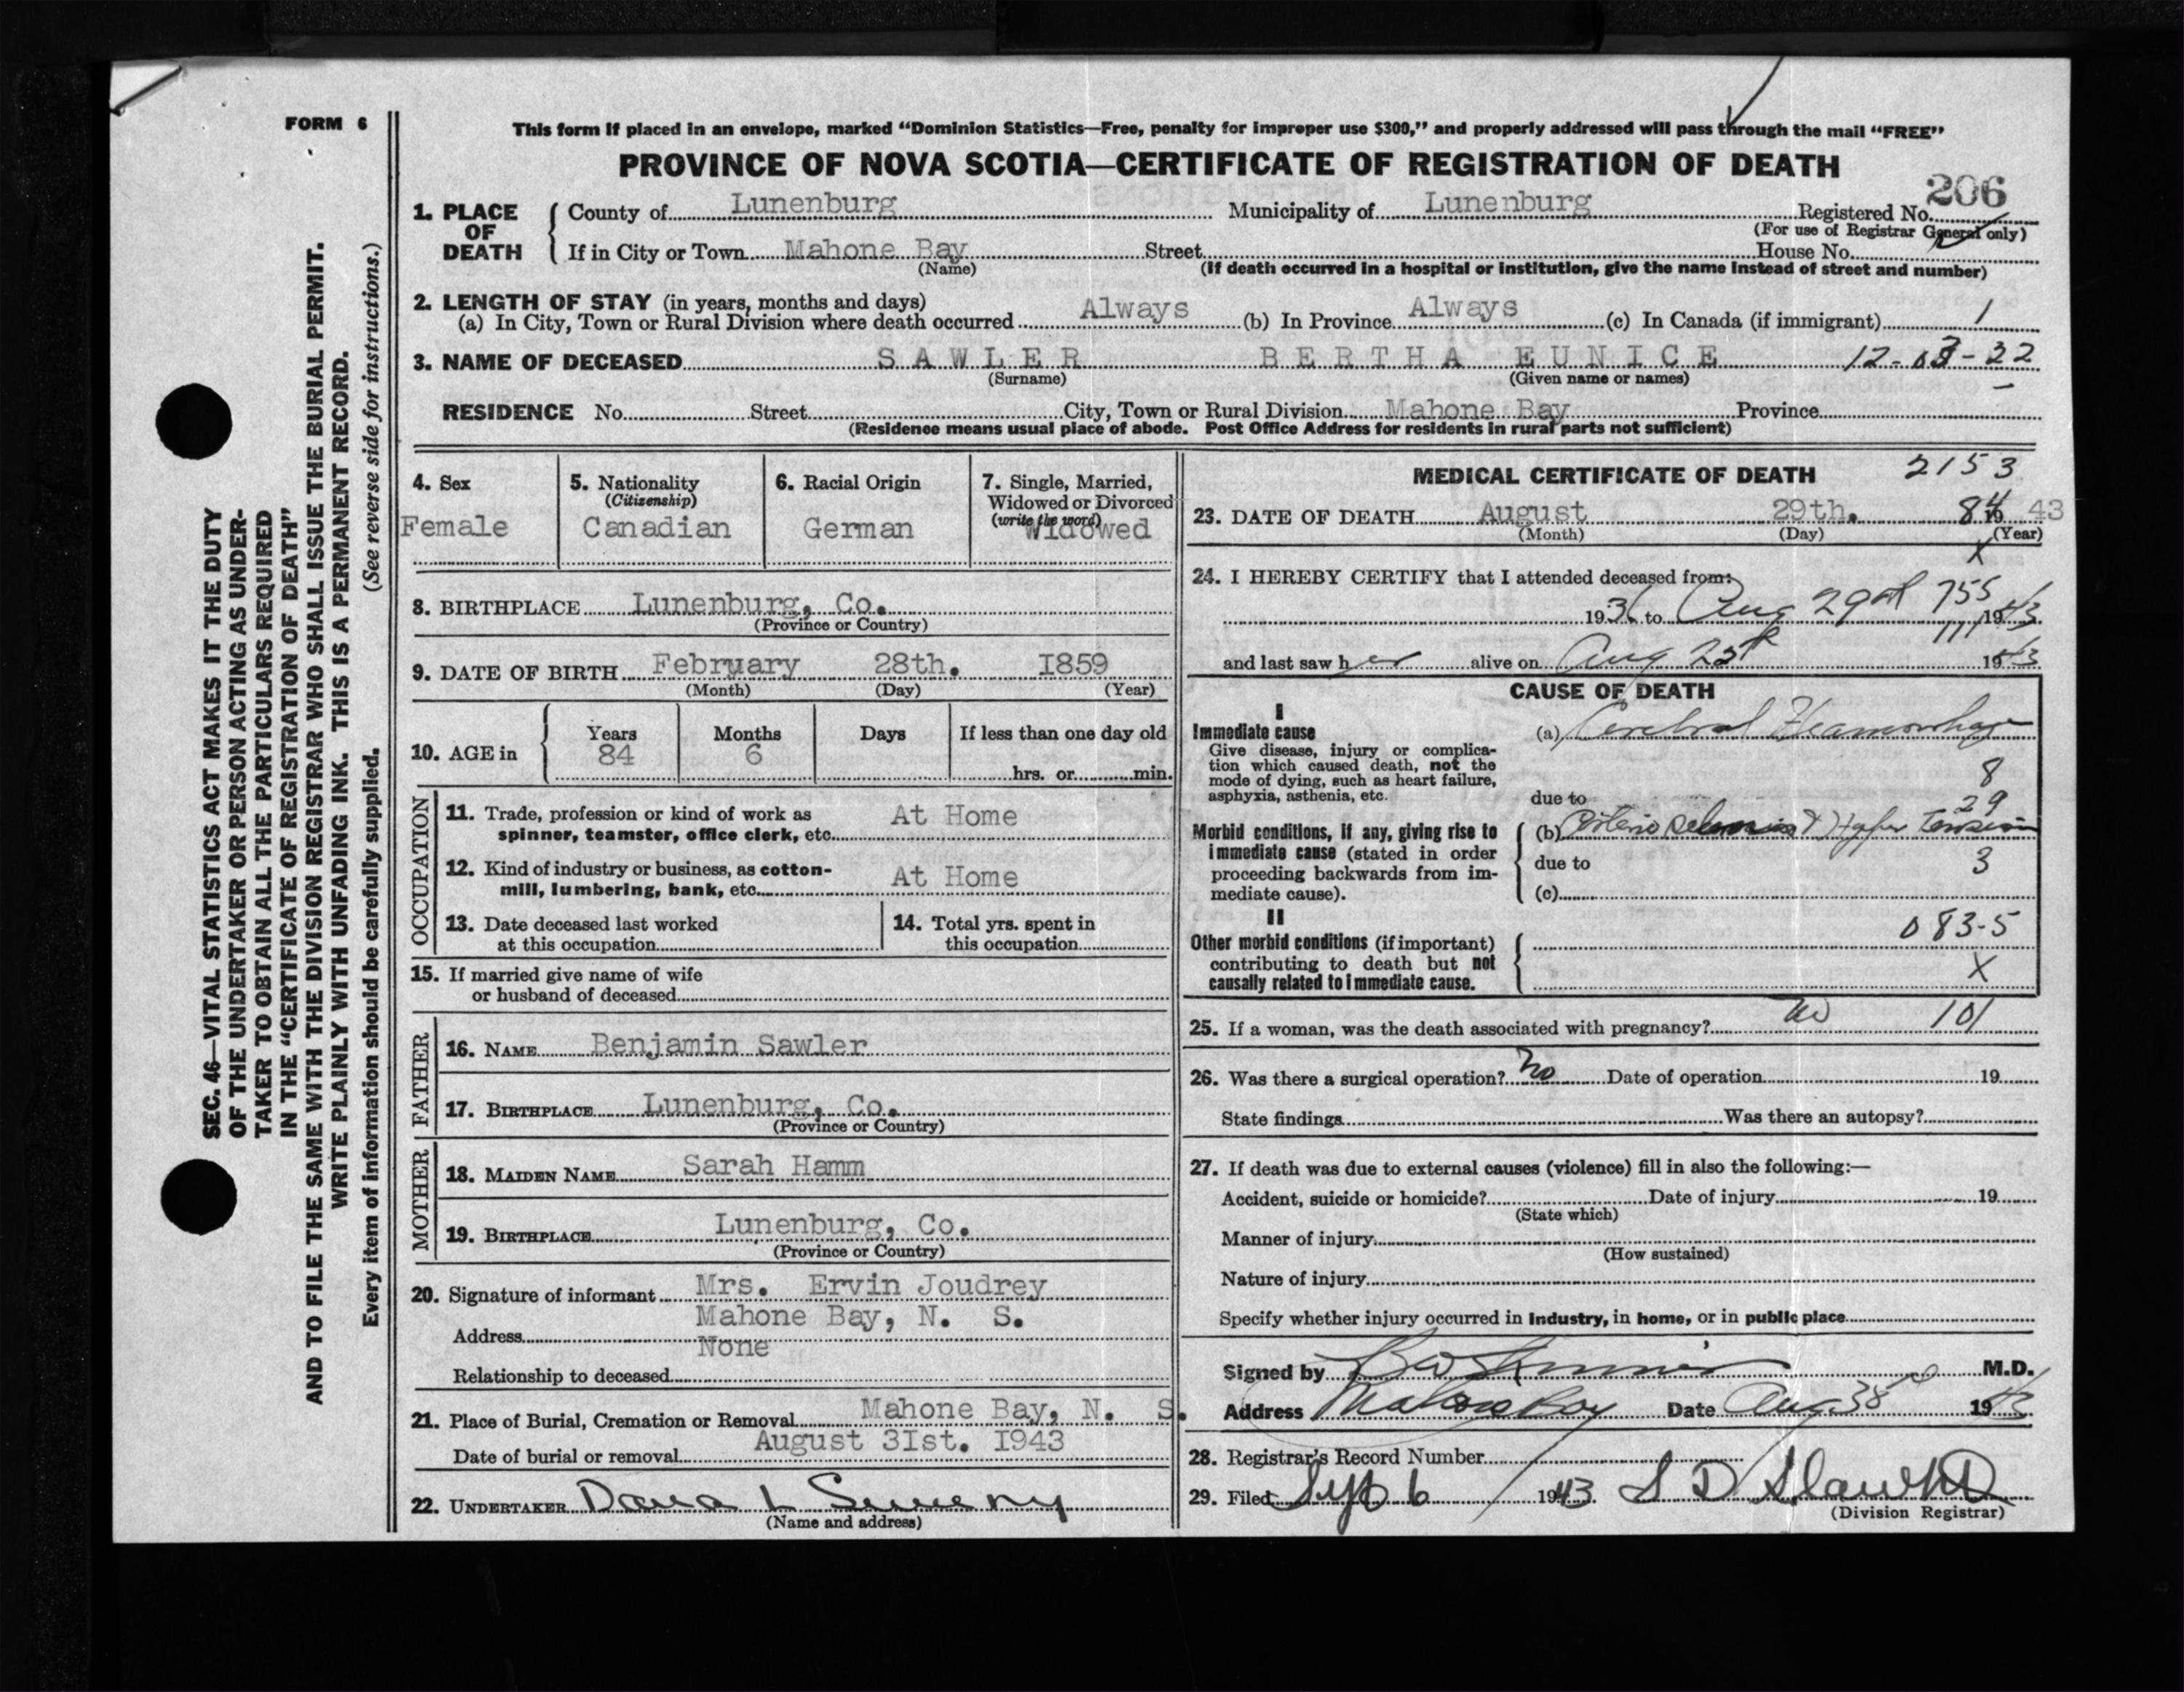 FORM 6
This form if placed in an envelope, marked “Dominion Statistics—Free, penalty for improper use $300,” and properly addressed will pass through the mail “FREE”
PROVINCE OF NOVA SCOTIA—CERTIFICATE OF REGISTRATION OF DEATH
206
1. PLACE OF DEATH { County of Lunenburg Municipality of Lunenburg Registered No.
(For use of Registrar General only)
If in City or Town Mahone Bay Street House No.
(Name) (If death occurred in a hospital or institution, give the name instead of street and number)
2. LENGTH OF STAY (in years, months and days)
(a) In City, Town or Rural Division where death occurred Always (b) In Province Always (c) In Canada (if immigrant) 1
3. NAME OF DECEASED SAWLER BERTHA EUNICE 12-03-22
(Surname) (Given name or names)
RESIDENCE No. Street City, Town or Rural Division Mahone Bay Province
(Residence means usual place of abode. Post Office Address for residents in rural parts not sufficient)
SEC. 46—VITAL STATISTICS ACT MAKES IT THE DUTY
OF THE UNDERTAKER OR PERSON ACTING AS UNDER-
TAKER TO OBTAIN ALL THE PARTICULARS REQUIRED
IN THE “CERTIFICATE OF REGISTRATION OF DEATH”
AND TO FILE THE SAME WITH THE DIVISION REGISTRAR WHO SHALL ISSUE THE BURIAL PERMIT.
WRITE PLAINLY WITH UNFADING INK. THIS IS A PERMANENT RECORD.
Every item of information should be carefully supplied. (See reverse side for instructions.)
4. Sex
Female
5. Nationality
(Citizenship)
Canadian
6. Racial Origin
German
7. Single, Married,
Widowed or Divorced
(write the word)
Widowed
8. BIRTHPLACE Lunenburg, Co.
(Province or Country)
9. DATE OF BIRTH February 28th. 1859
(Month) (Day) (Year)
10. AGE in { Years Months Days If less than one day old
84 6
hrs. or min.
OCCUPATION
11. Trade, profession or kind of work as
spinner, teamster, office clerk, etc. At Home
12. Kind of industry or business, as cotton-
mill, lumbering, bank, etc. At Home
13. Date deceased last worked
at this occupation
14. Total yrs. spent in
this occupation
15. If married give name of wife
or husband of deceased
FATHER
16. NAME Benjamin Sawler
17. BIRTHPLACE Lunenburg, Co.
(Province or Country)
MOTHER
18. MAIDEN NAME Sarah Hamm
19. BIRTHPLACE Lunenburg, Co.
(Province or Country)
20. Signature of informant Mrs. Ervin Joudrey
Address Mahone Bay, N. S.
Relationship to deceased None
21. Place of Burial, Cremation or Removal Mahone Bay, N. S.
Date of burial or removal August 31st. 1943
22. UNDERTAKER Dana L Sweeny
(Name and address)
MEDICAL CERTIFICATE OF DEATH 2153
23. DATE OF DEATH August 29th. 84 19 43
(Month) (Day) (Year)
X
24. I HEREBY CERTIFY that I attended deceased from:
1936 to Aug 29th 755 1943
111
and last saw her alive on Aug 1943
CAUSE OF DEATH
I
Immediate cause
Give disease, injury or complica-
tion which caused death, not the
mode of dying, such as heart failure,
asphyxia, asthenia, etc.
(a) Cerebral Heamorhage
8
due to
29
Morbid conditions, if any, giving rise to
immediate cause (stated in order
proceeding backwards from im-
mediate cause).
(b) Arterio Sclerosis & Hyper Tension
due to 3
(c)
II
Other morbid conditions (if important)
contributing to death but not
causally related to immediate cause.
083-5
X
25. If a woman, was the death associated with pregnancy? No 101
26. Was there a surgical operation? No Date of operation 19
State findings Was there an autopsy?
27. If death was due to external causes (violence) fill in also the following:—
Accident, suicide or homicide? Date of injury 19
(State which)
Manner of injury
(How sustained)
Nature of injury
Specify whether injury occurred in industry, in home, or in public place
Signed by M.D.
Address Mahone Bay Date Aug 1943
28. Registrar’s Record Number
29. Filed Sept 6 1943 S D
(Division Registrar)